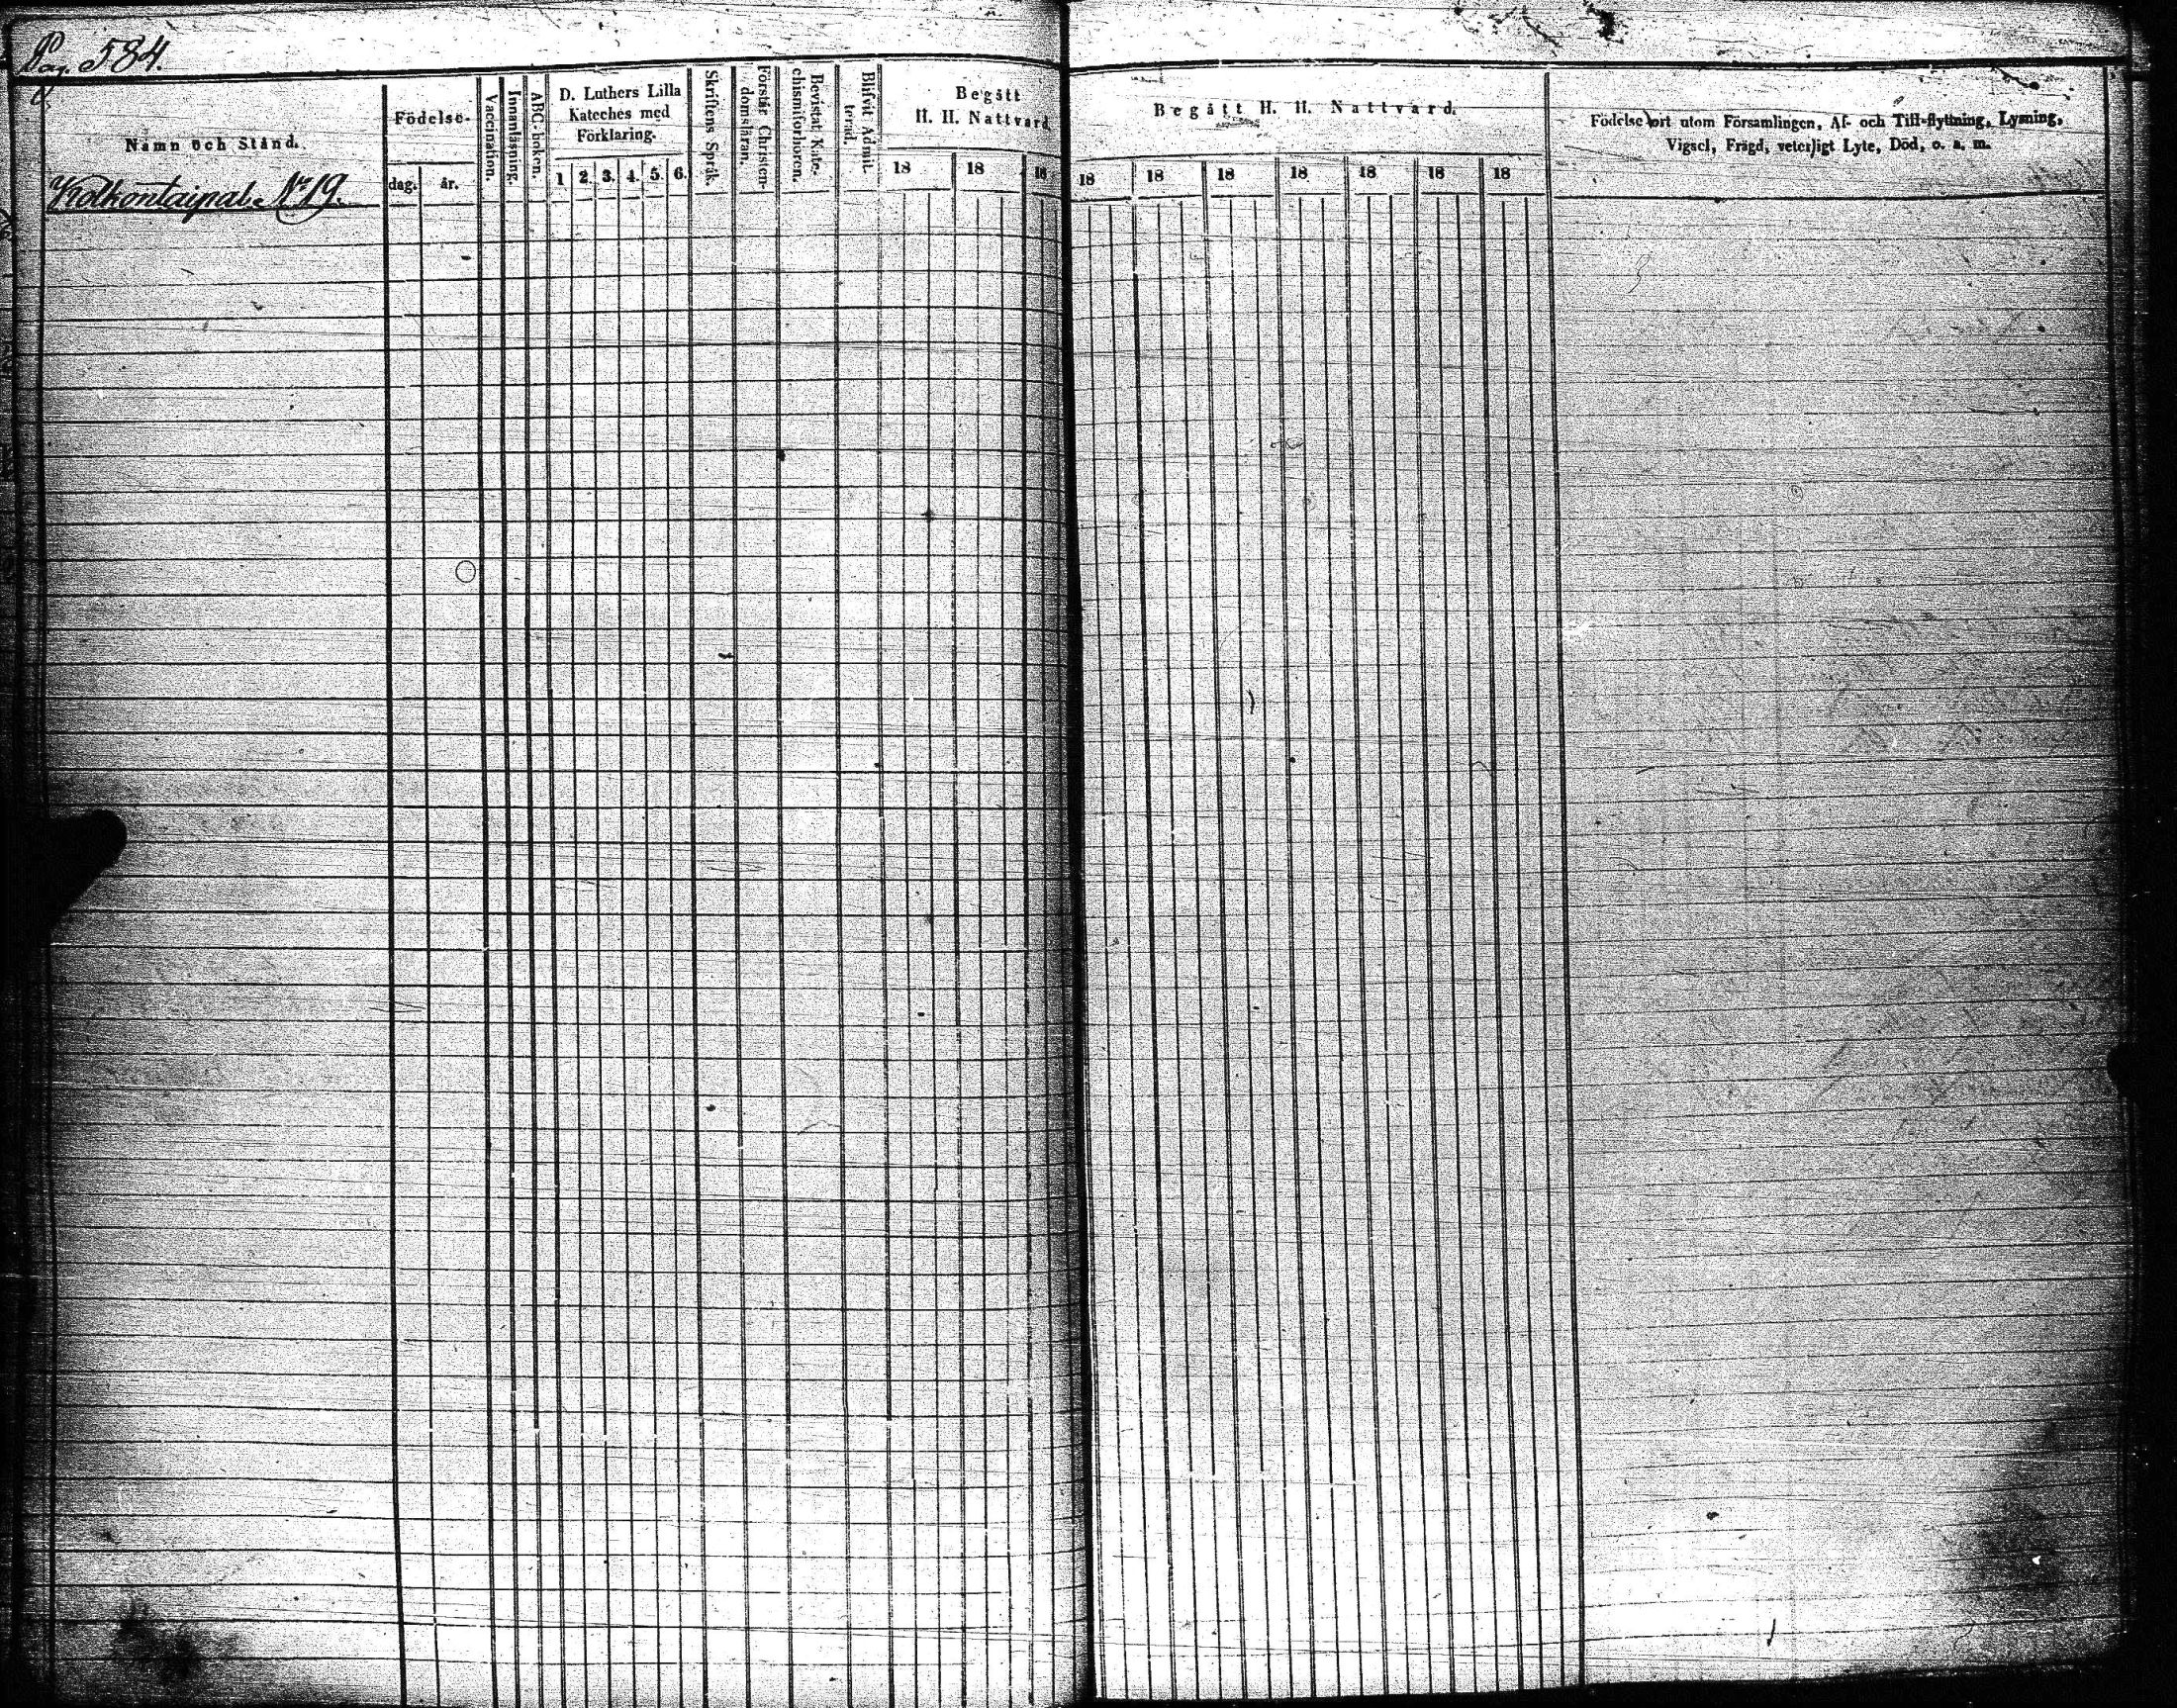 Pag. 584.
Namn och Stånd.
Kolkontaipal. No 19.
Födelse-
dag. år.
Vaccination.
Innanläsning.
ABC-boken.
D. Luthers Lilla
Kateches med
Förklaring.
1 2. 3. 4. 5. 6.
Skriftens Språk.
Förstår Christen-
domsläran.
Bevistat Kate-
chismiförhören.
Blifvit Admit-
terad.
Begått
H. H. Nattvard.
18 18 18
Begått H. H. Nattvard.
18 18 18 18 18 18 18
Födelse ort utom Församlingen, Af- och Till-flyttning, Lysning,
Vigsel, Frägd, veterligt Lyte, Död, o. s. m.